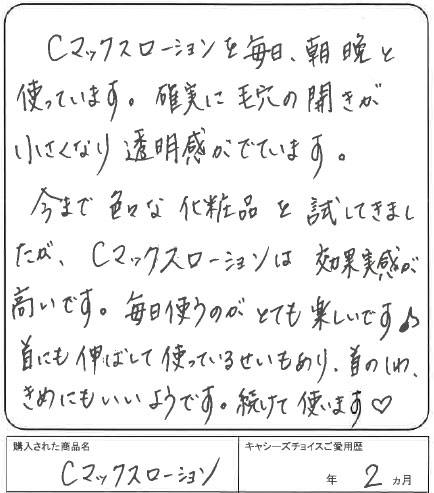 Cマックスローションを毎日、朝晩と
使っています。確実に毛穴の開きが
小さくなり透明感がでています。
今まで色々な化粧品を試してきまし
たが、Cマックスローションは効果実感が
高いです。毎日使うのがとても楽しいです♪
首にも伸ばして使っているせいもあり、首のしわ、
きめにもいいようです。続けて使います♡
購入された商品名
Cマックスローション
キャシーズチョイスご愛用歴
年 2 ヵ月